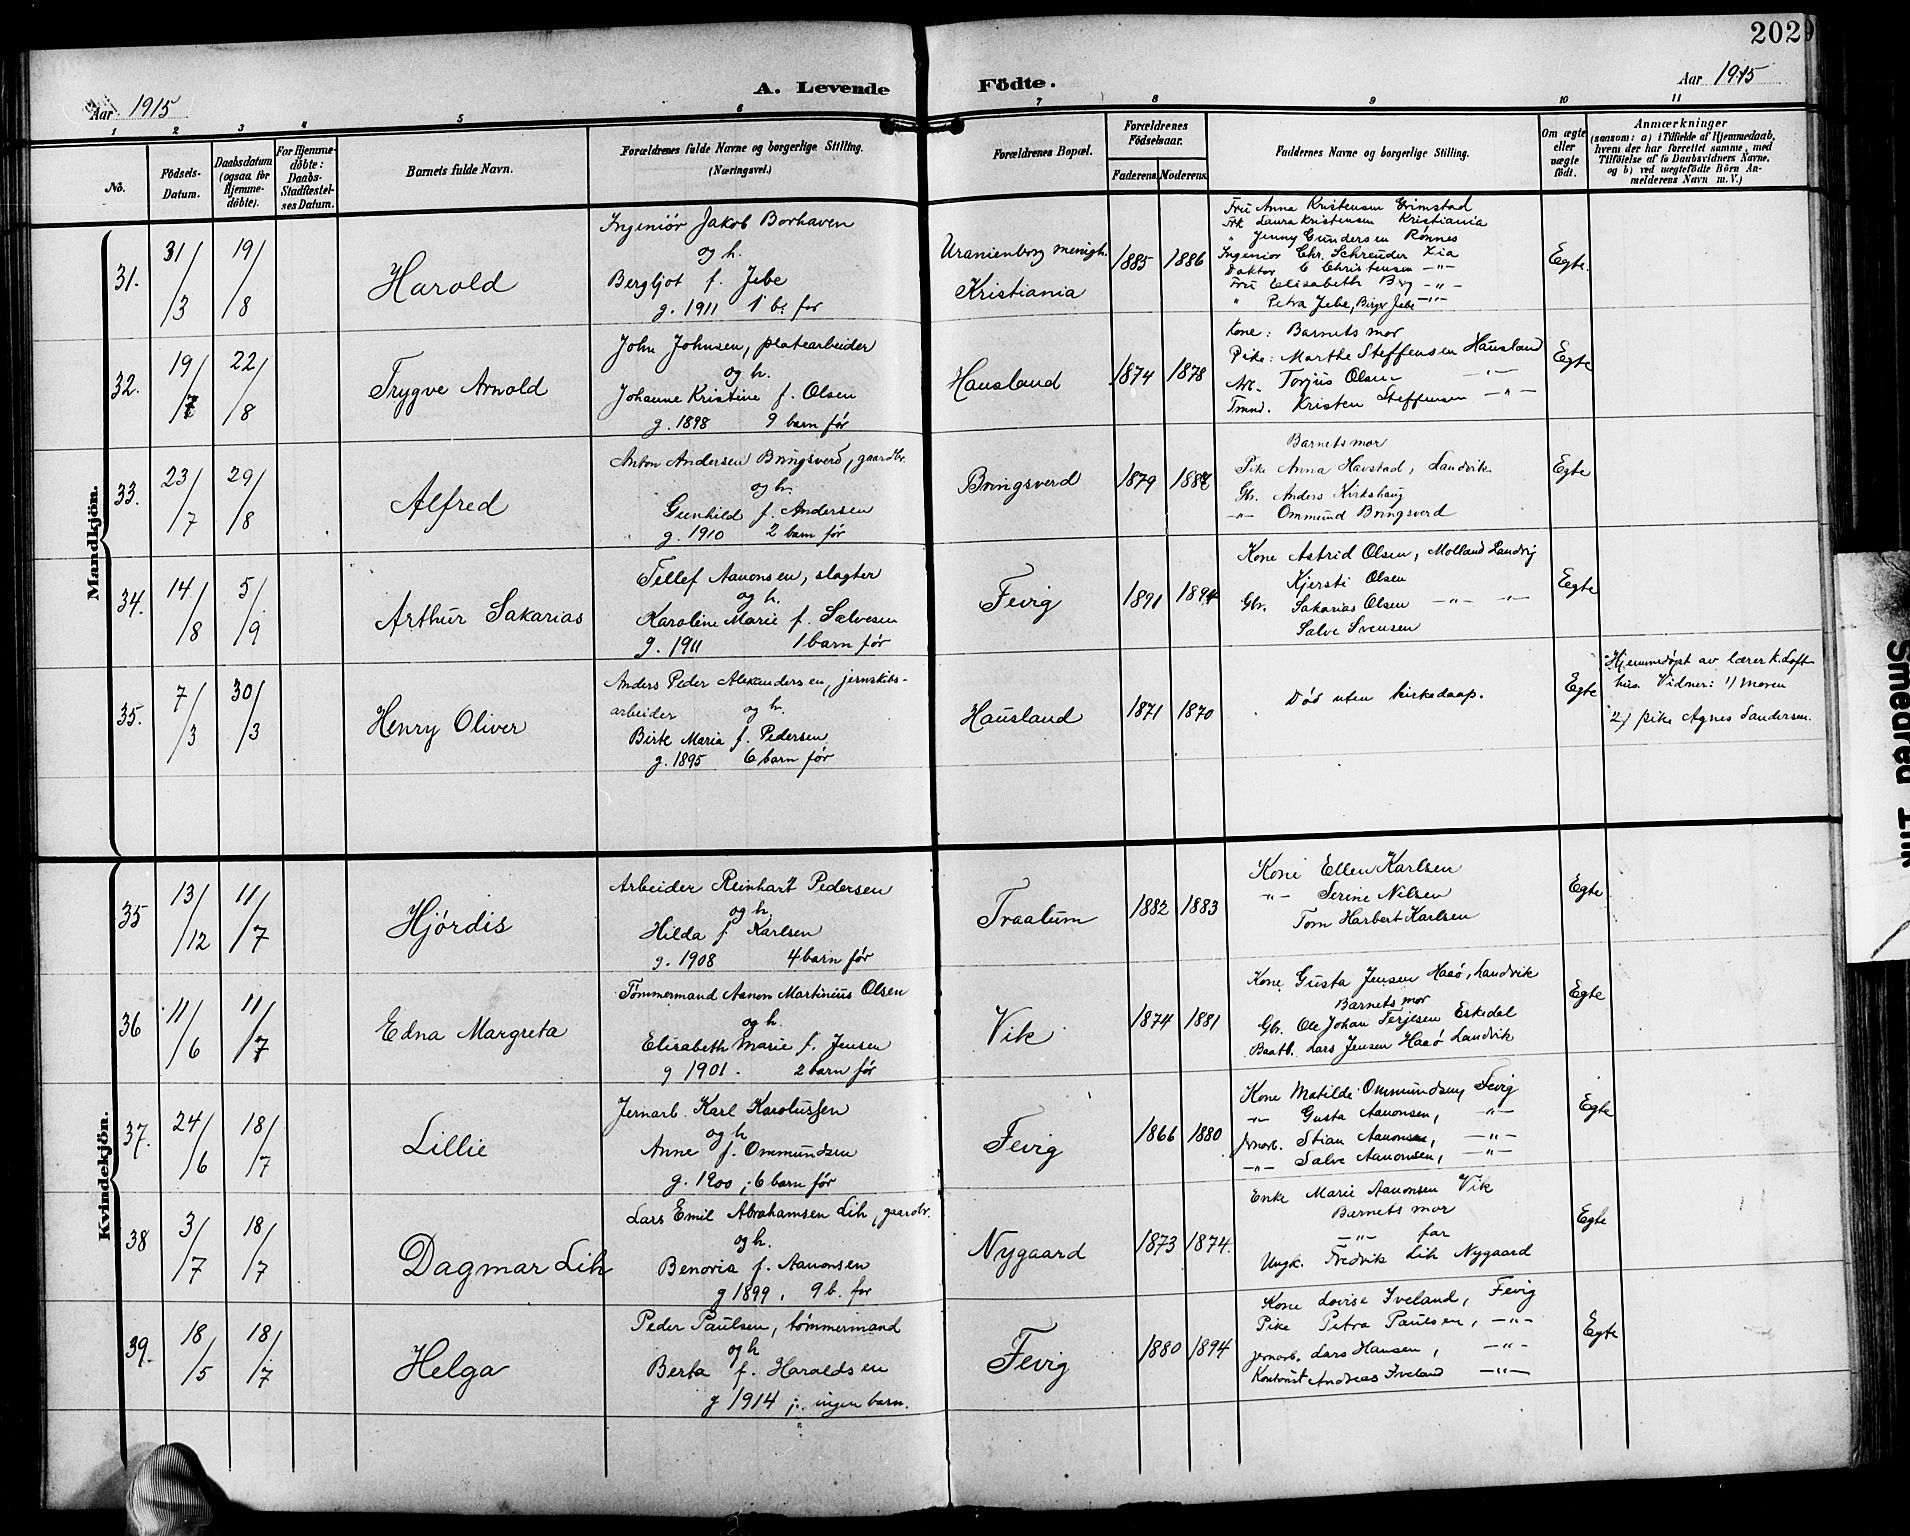 202
Aar 1915
A. Levende Födte.
Aar 1915
1 2 3 4 5 6 7 8 9 10 11
No.
Födsels-Datum.
Daabsdatum (ogsaa for Hjemme-döbte).
For Hjemme-döbte: Daabs-Stadfæstel-ses Datum.
Barnets fulde Navn.
Forældrenes fulde Navne og borgerlige Stilling.
(Næringsvei.)
Forældrenes Bopæl.
Forældrenes Födselsaar.
Faderens. Moderens.
Faddernes Navne og borgerlige Stilling.
Om ægte eller uægte födt.
Anmærkninger
(saasom: a) i Tilfælde af Hjemmedaab,
hvem der har forrettet samme, med
Tilföielse af to Daabsvidners Navne,
og b) ved uægtefödte Börn An-
melderens Navn m. V.)
Mandkjön.
31. 31/3 19/8 Harold
Ingeniør Jakob Borhaven
og h.
Bergljot f. Jebe
g. 1911 1 b. før
Uranienborg menigh.
Kristiania
1885 1886
Fru Anna Kristensen Grimstad
Frk Laura Kristensen Kristiania
" Jenny Gundersen Rønnes
Ingeniør Chr. Schreuder Kia
Doktor C Christensen -"-
Fru Elisabeth Berg -"-
" Petra Jebe, Birger Jebe -"-
Egte.
32. 19/7 22/8 Trygve Arnold
John Johnsen, platearbeider
og h.
Johanne Kristine f. Olsen
g. 1898 9 barn før
Hausland
1874 1878
Kone: Barnets mor
Pike: Marthe Steffensen Hausland
Arb. Torjus Olsen -"-
Tmmd. Kristen Steffensen -"-
Egte
33. 23/7 29/8 Alfred
Anton Andersen Bringsverd, gaardbr.
og h.
Gunhild f. Andersen
g. 1910 2 barn før
Bringsverd
1879
Barnets mor
Pike Anna Havstad, Landvik
Gbr. Anders Kirkshaug
-"- Ommund Bringsverd
Egte
34. 14/8 5/9 Arthur Sakarias
Tellef Aanonsen, slagter
og h.
Karoline Marie f. Salvesen
g. 1911 1 barn før
Fevig
1891 1894
Kone Astrid Olsen, Molland Landvig
Kjersti Olsen
Gbr. Sakarias Olsen -"- -"-
Salve Svensen
Egte
35. 7/3 30/3 Henry Oliver
Anders Peder Alexandersen, jernskibs-
arbeider og h.
Birte Maria f. Pedersen
g. 1895 6 barn før
Hausland
1871 1870
Død uten kirkedaap.
Egte
Hjemmedøpt av lærer K. Loft-
hus. Vidner: 1) Moren
2) pike Agnes Sandersen.
Kvindekjön.
35 13/12 11/7 Hjørdis
Arbeider Reinhart Pedersen
og h
Hilda f Karlsen
g. 1908 4 barn før
Traalum
1882 1883
Kone Ellen Karlsen
-"- Serine Nilsen
Tom Harbert Karlsen
Egte
36 11/6 11/7 Edna Margreta
Tømmermand Aanon Martinius Olsen
og h.
Elisabeth Marie f. Jensen
g 1901. 2 barn før
Vik
1874 1881
Kone Gusta Jensen Haaø, Landvik
Barnets mor
Gbr. Ole Johan Terjesen Eskedal
Baatb. Lars Jensen Haaø Landvik
Egte
37. 24/6 18/7 Lillie
Jernarb. Karl Karolussen
og h
Anne f. Ommundsen
g. 1900; 6 barn før
Fevig
1866 1880
Kone Matilde Ommundsen, Fevig
-"- Gusta Aanonsen, -"-
Jernarb. Stian Aanonsen, -"-
-"- Salve Aanonsen, -"-
Egte
38 3/7 18/7 Dagmar Lih
Lars Emil Abrahamsen Lih, gaardbr.
og h.
Benoria f. Aanonsen
g 1899, 9 b. før
Nygaard
1873 1874.
Enke Marie Aanonsen Vik
Barnets mor
-"- far
Ungk. Fredrik Lih Nygaard
Egte
39. 18/5 18/7 Helga
Peder Paulsen, tømmermand
og h
Berta f. Haraldsen
g 1914; ingen barn.
Fevig
1880 1894
Kone Lovise Iveland, Fevig
Pike Petra Paulsen, -"-
Jernarb. Lars Hansen, -"-
Kontorist Andreas Iveland -"-
Egte
Smeared Ink